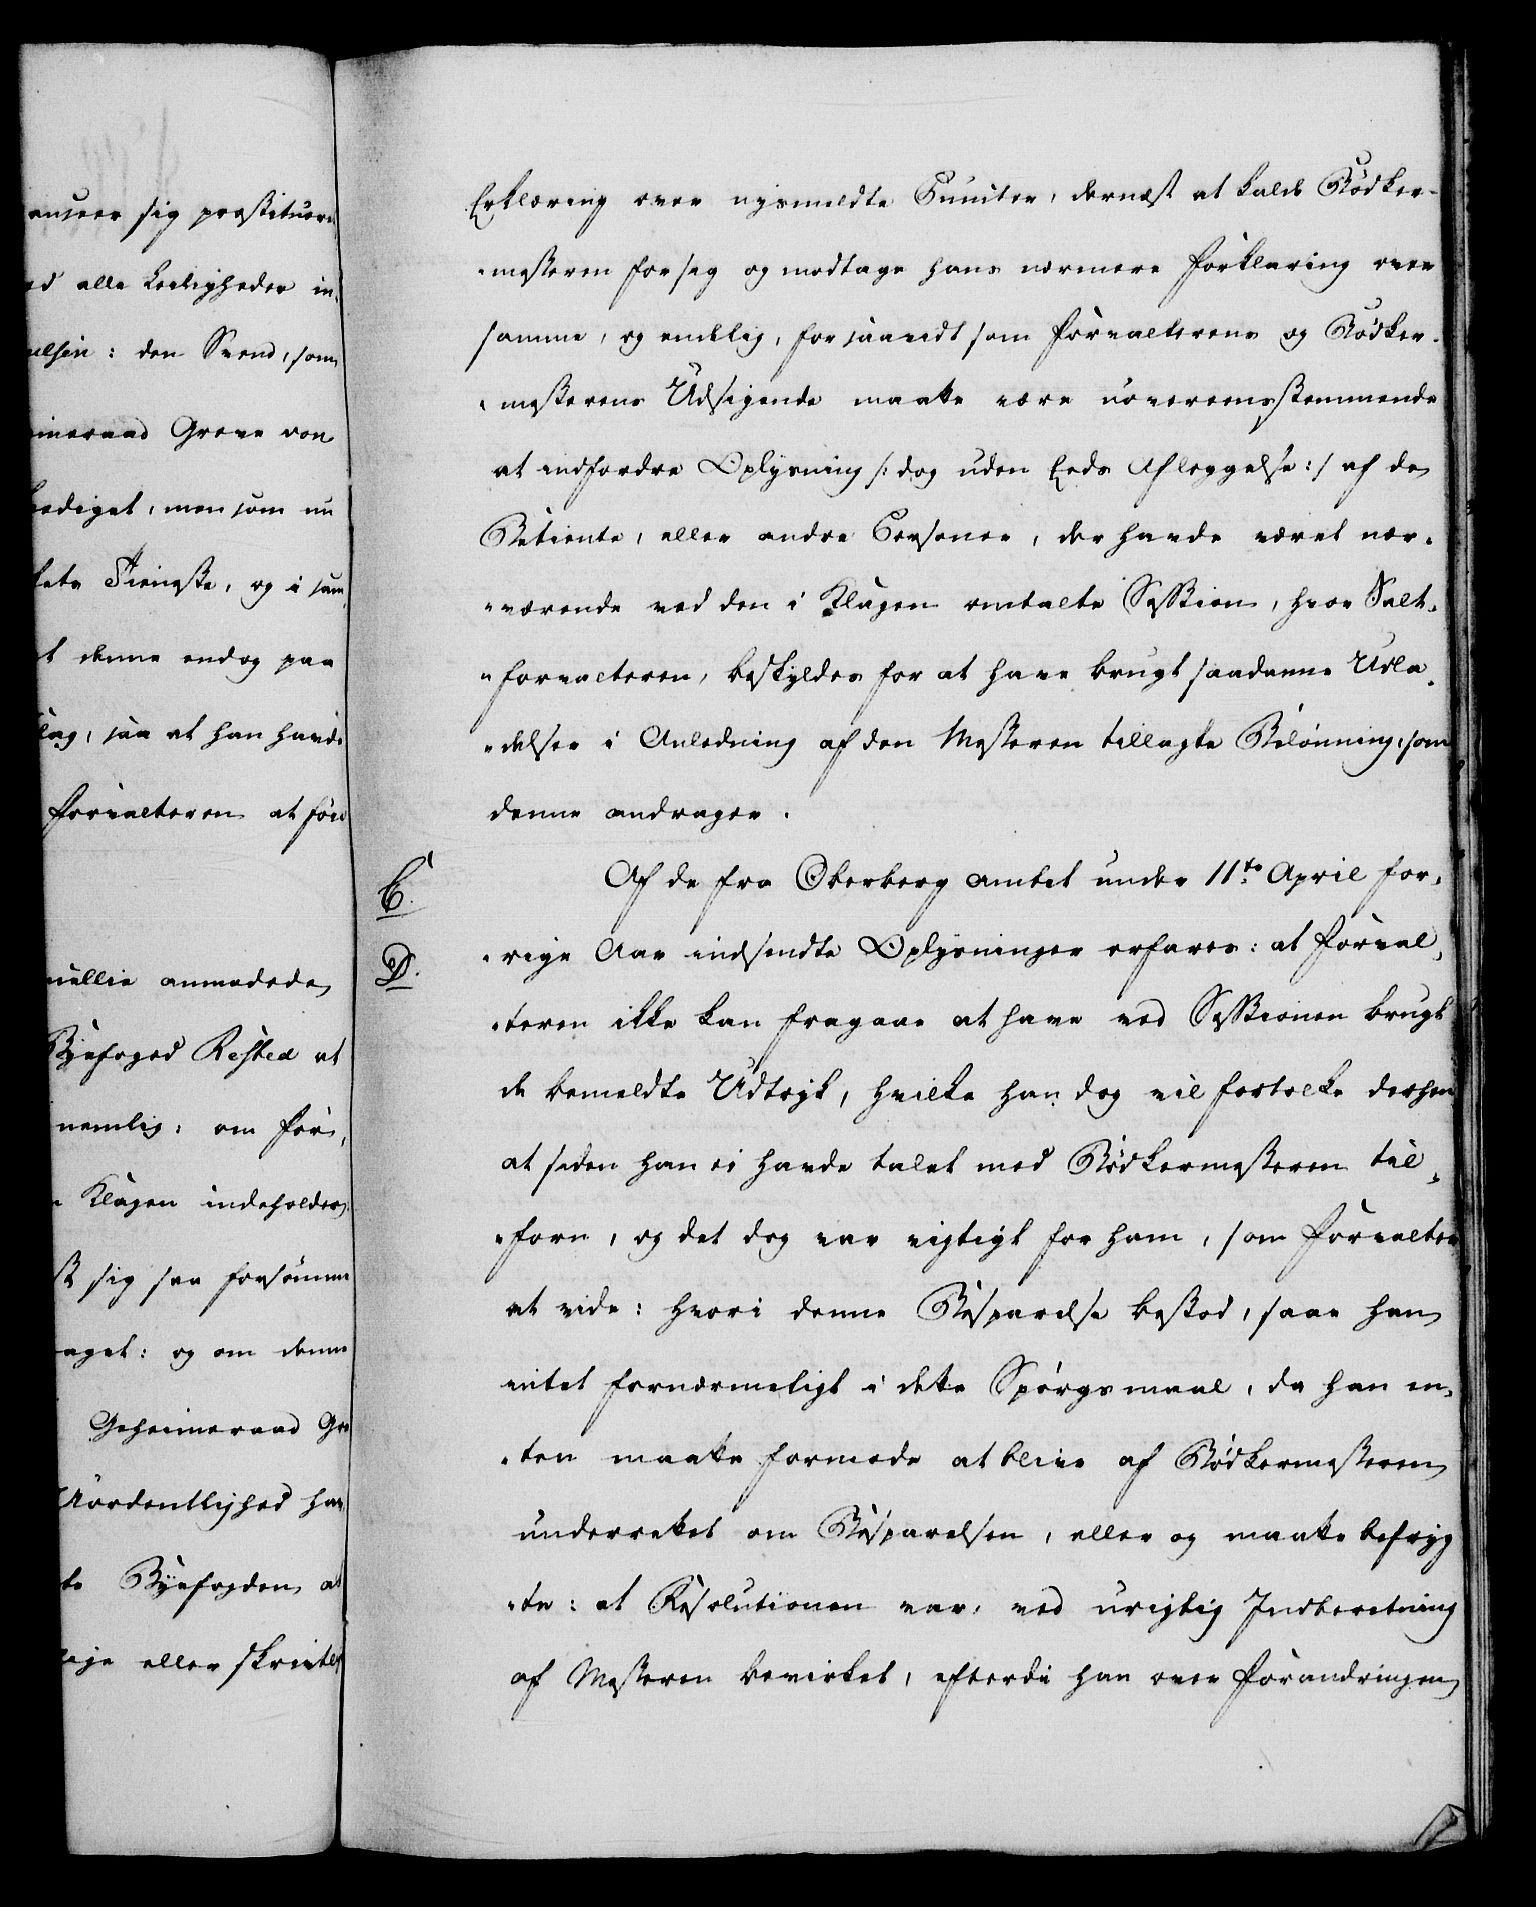 anseer sig prostituere
ed alle Leeligheder in¬
elsen: den Svend, som
imeraad Greve von
kediget, men som nu
kets Tieneste, og i sam
t denne endog paa
lag, saa at han havde
Forvalteren at föie
uellie anmodede
Byefoged Rested at
nemlig: om For¬
Klagen indeholder
st sig saa forsømme
aget: og om denne
Geheimeraad Gre
Uordentlighed han
te Byefogden at
eje eller skrivtl
Erklæring over nysmeldte Puncter, dernæst at kalde Bødker¬
mesteren for sig og modtage hans nærmere Forklaring over
samme, og endelig, for saavidt som Forvalterens og Bødker¬
mesterens Udsigende maatte være uovereensstemmende
at indfordre Oplysning /: dog uden Eeds Aflæggelse:/ af de
Betiente, eller andre Personer, der havde været nær¬
værende ved den i Klagen omtalte Session, hvor Salt¬
forvalteren, beskyldes for at have brugt saadanne Udla¬
delser i Anledning af den Mesteren tillagte Belønning, som
denne andrager.
C.
Af de fra Oberberg amtet under 11te April for¬
D.
rige Aar indsendte Oplysninger erfares: at Forval¬
teren ikke kan fragaae at have ved Sessionen brugt
de bemeldte Udtryk, hvilke han dog vil fortolke derhen
at siden han ei havde talet med Bødkermesteren til¬
forn, og det dog var vigtigt for ham, som Forvalter
at vide: hvori denne Besparelse bestod, saae han
intet fornærmeligt i dette Spörgsmaal, da han en¬
ten maatte formode at blive af Bødkermesteren
underrettet om Besparelsen, eller og maatte befryg
te: at Resolutionen var, ved urigtig Indberetning
af Mesteren bevirket, efterdi han over Forandringen